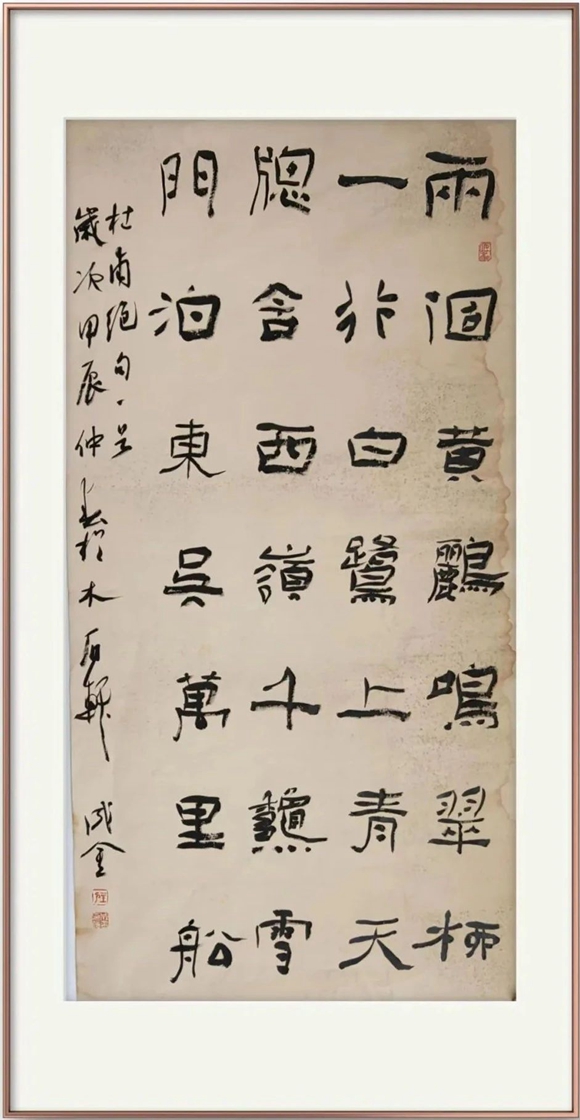 兩個黃鸝鳴翠柳
一行白鷺上青天
牕含西嶺千龝雪
門泊東吳萬里船
杜甫绝句
歲次甲辰仲春於木石軒 成金